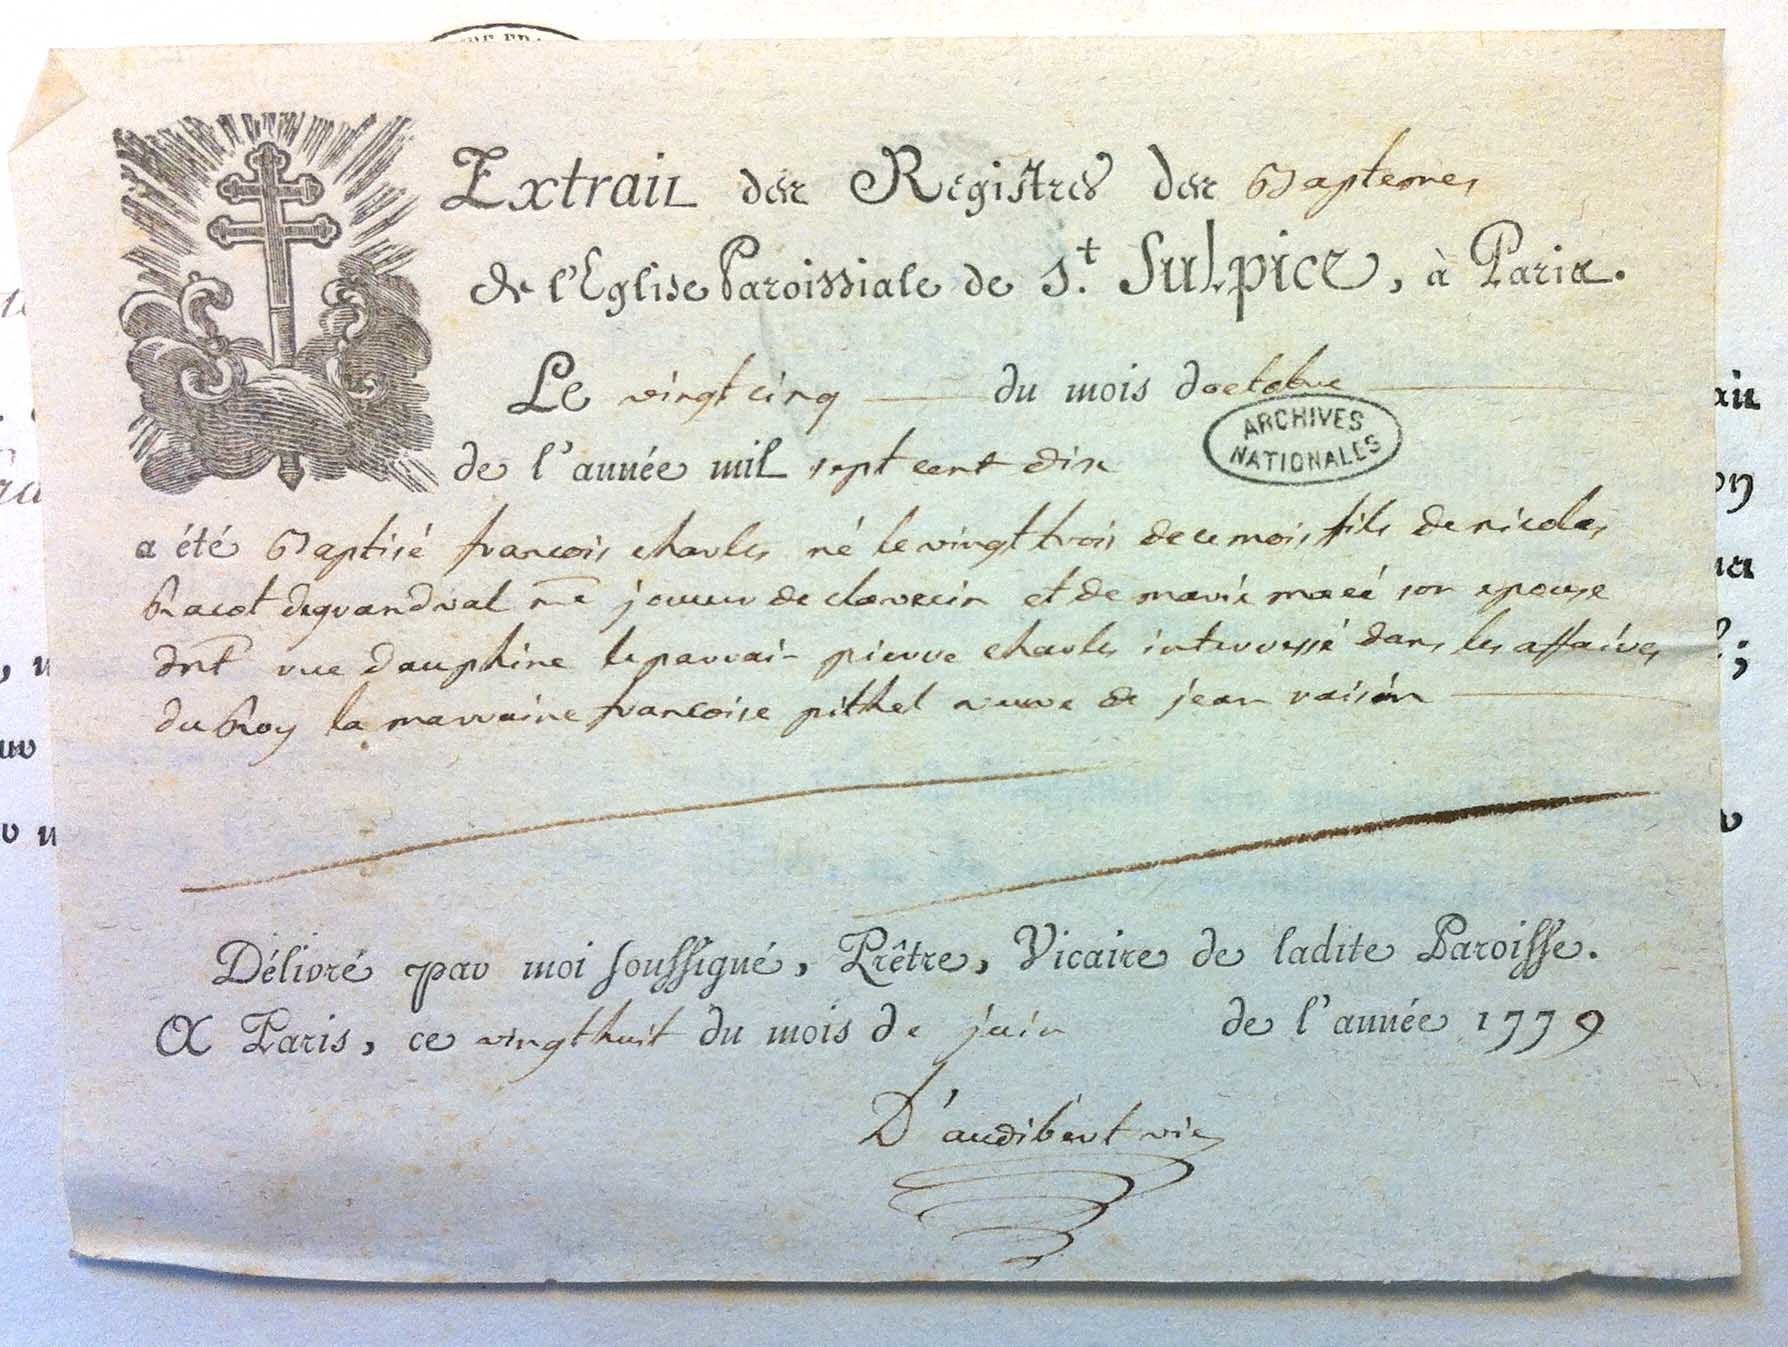 Extrait des Registres des Baptemes
de l'Eglise Paroissiale de St. Sulpice, à Paris.
Le vingt cinq du mois doctobre
ARCHIVES
NATIONALES
de l'année mil sept cent dix
a été Baptisé francois charles né le vingt trois de ce mois fils de nicolas
Racot degrandval me joueur de clavecin et de marie macé son epouse
dnt rue dauphine le parrain pierre charles interressé dans les affaires
du Roy la marraine francoise pithel veuve de jean raisin
Délivré par moi soussigné, Prêtre, Vicaire de ladite Paroisse.
A Paris, ce vingt huit du mois de juin de l'année 1779
D'audibert vic